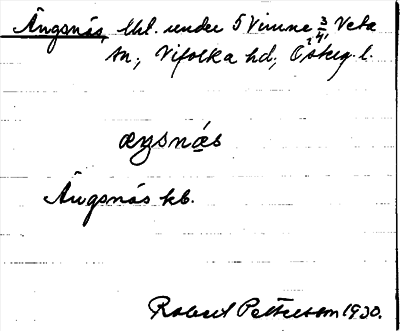 Ängsnäs, lht. under 5 Vimne 3/4, Veta
sn., Vifolka hd, Österg. l.
æŋsnæ̀s
Ängsnäs kb.
Robert Pettersson 1930.